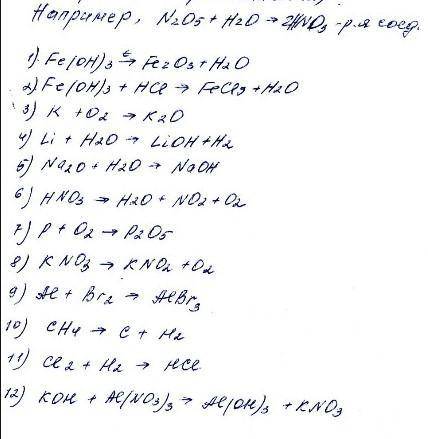 Например, N2O5 + H2O → 2HNO3 - р.я соед.
1) Fe(OH)3 →t Fe2O3 + H2O
2) Fe(OH)3 + HCl → FeCl3 + H2O
3) K + O2 → K2O
4) Li + H2O → LiOH + H2
5) Na2O + H2O → NaOH
6) HNO3 → H2O + NO2 + O2
7) P + O2 → P2O5
8) KNO3 → KNO2 + O2
9) Al + Br2 → AlBr3
10) CH4 → C + H2
11) Cl2 + H2 → HCl
12) KOH + Al(NO3)3 → Al(OH)3 + KNO3